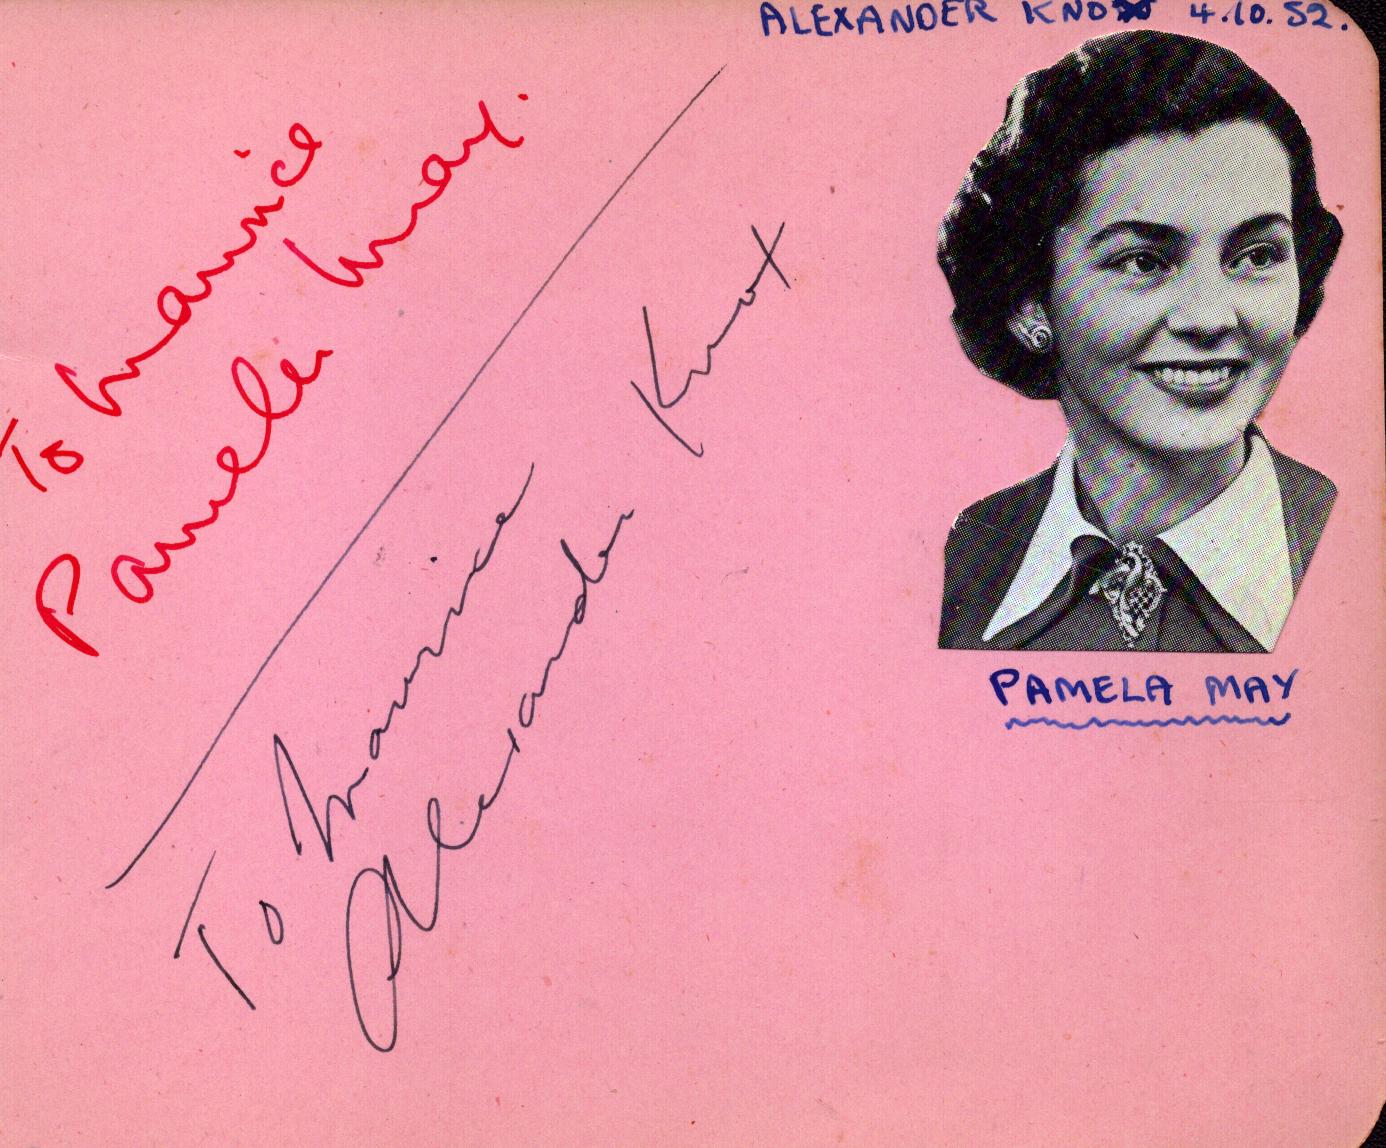 ALEXANDER KNOX 4.10.52.
To Maurice
Pamela May.
To Maurice
Alexander Knox
PAMELA MAY